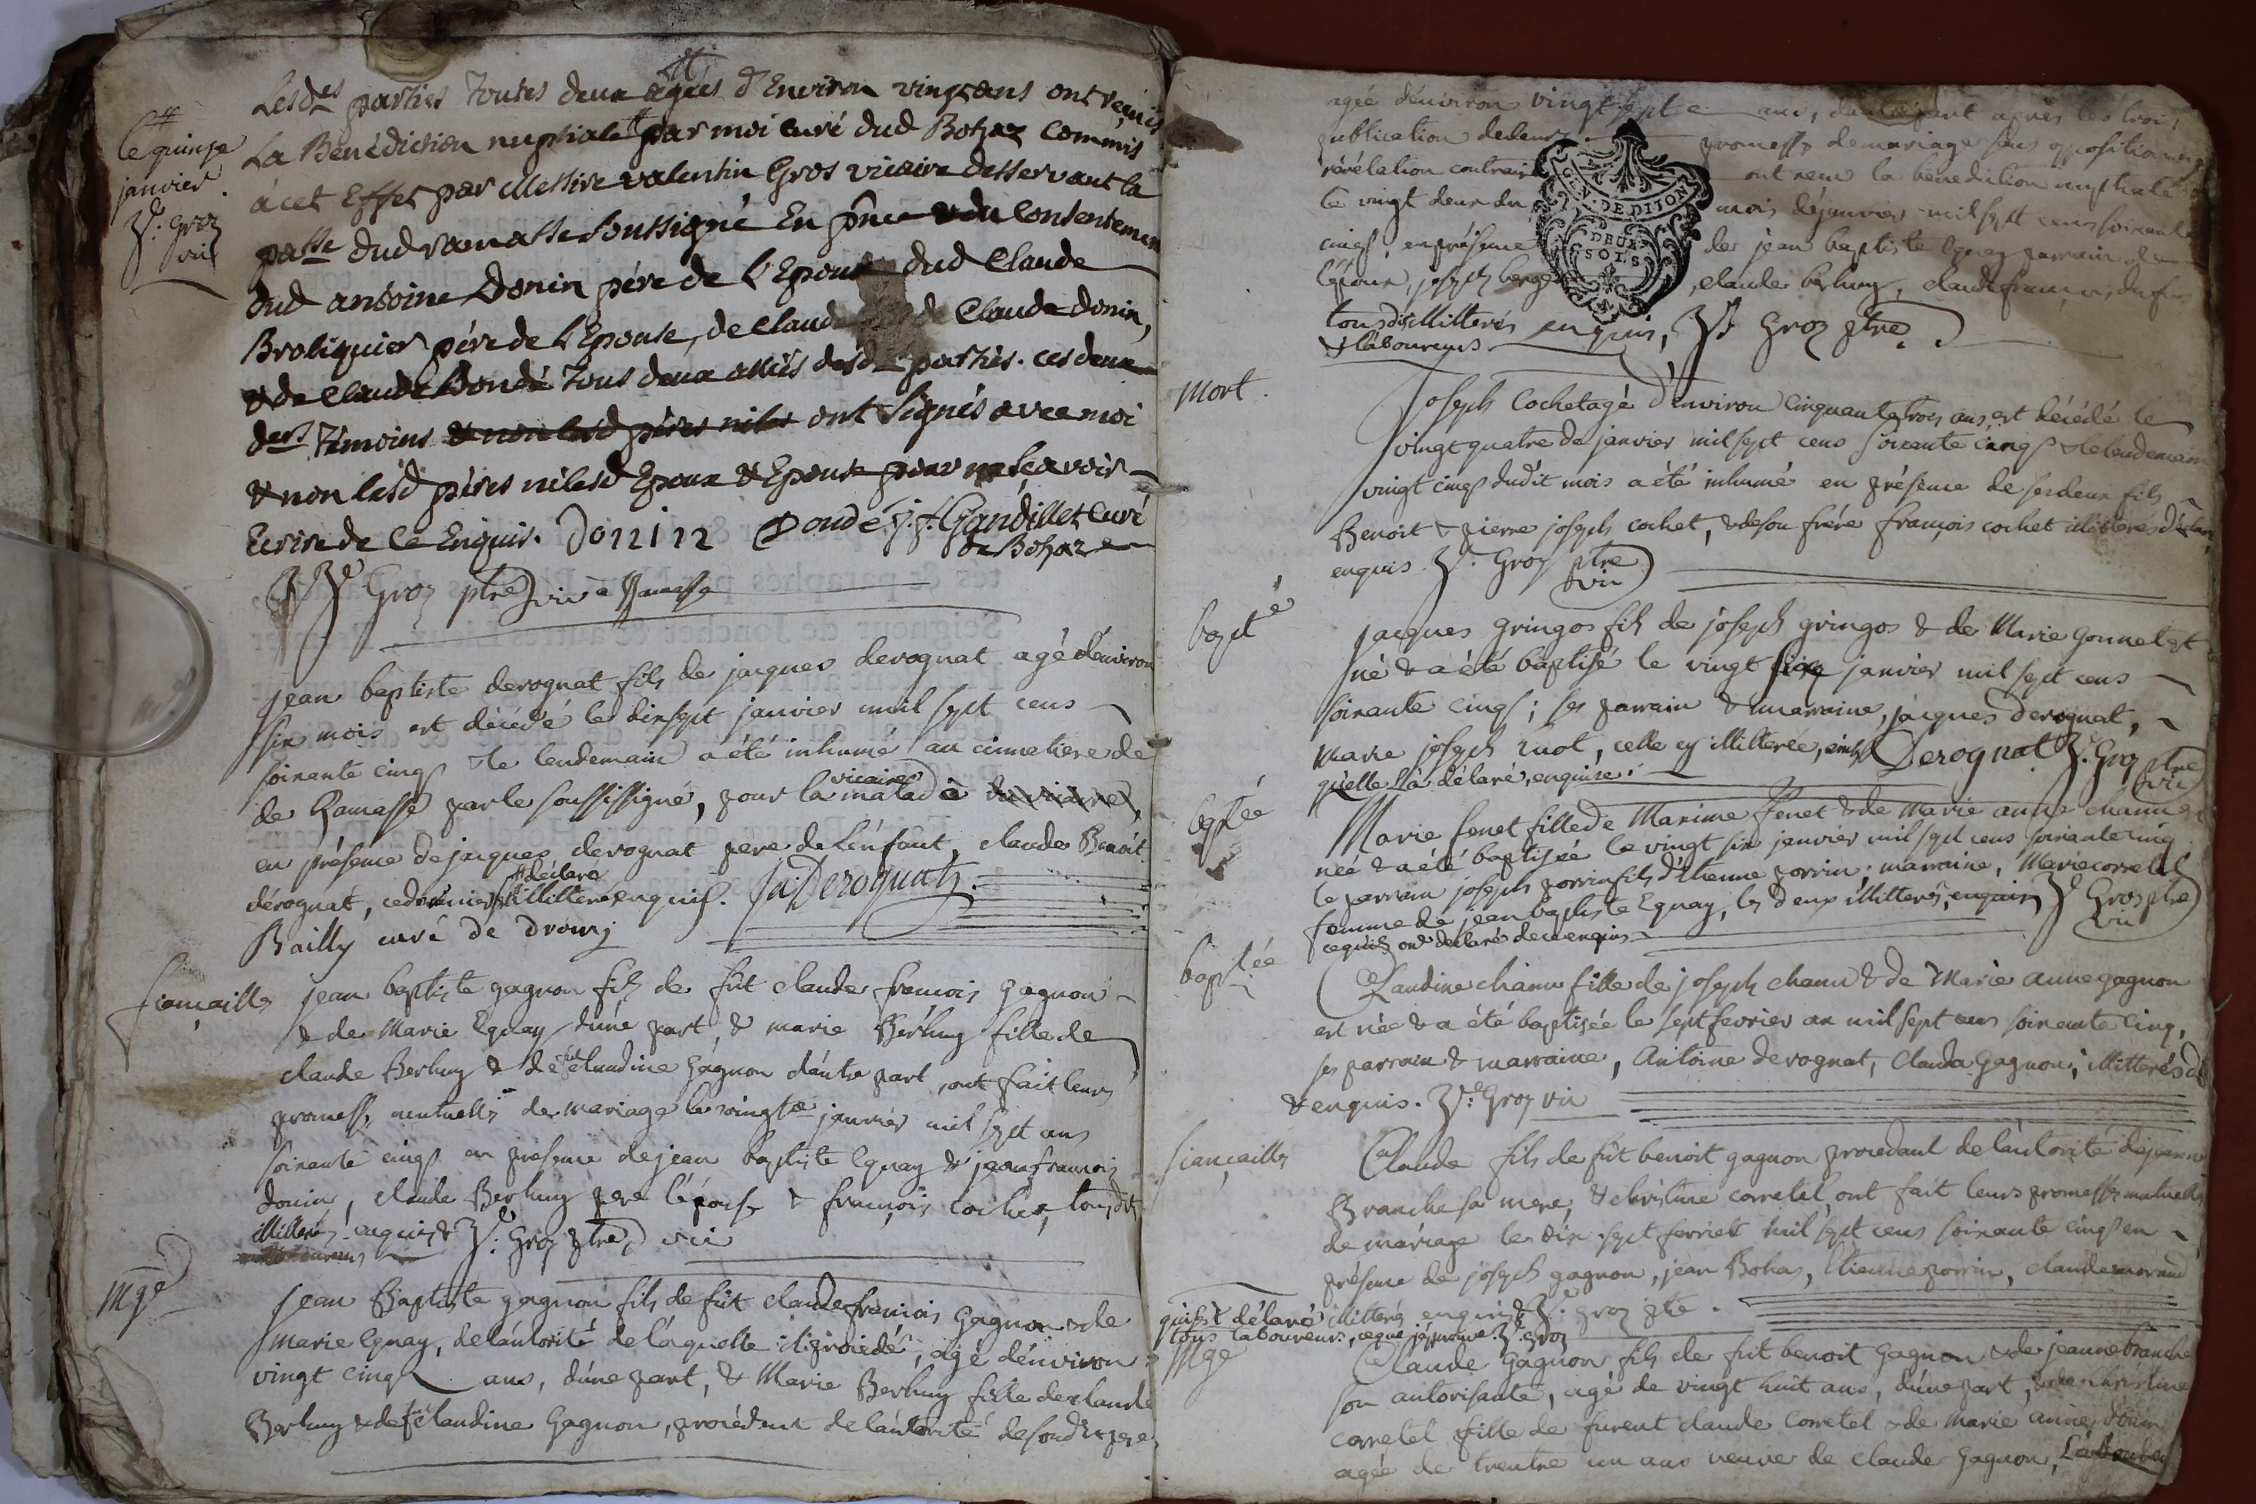 Lesd.es parties Toutes deux agées d'Environ vingt ans ont reçûs
Le quinze
janvier.
V.d: Groz
vic
La Bénédiction nuptiale par moi curé dud Bohaz commis
à cet Effet par Messire valentin Gros vicaire desservant la
passe dud ramasse soussigné En pnce & du consentement
dud antoine Donin père de l'Epoux dud Claude
Broliquier père de l'Epouse, de Claude de Claude donin,
& de Claude Dondé Tous deux alliés desd parties. ces deux
ders Témoins & non lesd pères niles ont signés avec moi
& non lesd pères nilesd Epoux & Epouse pour ne sçavoir
Ecrire de ce Enquis. Donin Dondé j. f. Gandillet curé
de Bohaz
V.d Groz ptre vic à Ramasse
jean baptiste derognat fils de jacques derognat agé d'environ
six mois est décédé le dix sept janvier mil sept cens
soixante cinq & le lendemain a été inhumé au cimetiere de
de Ramasse par le soussissigné, pour la maladie vicaire
en présence de jacques derognat pere de l'énfant, claude Benoit
dérognat, ce dernier illitteré enquis. déclaré Derognat
Bailly curé de Drom
fiançailles
jean baptiste gagnon fils de fût claude francois gagnon
& de Marie Eguay d'une part, & marie Berhuy fille de
claude Berhuy & de fut claudine Gagnon d'autre part, ont fait leurs
promess. mutuelles de mariage le vingt janvier mil sept cens
soixante cinq en présence de jean baptiste Eguay & jean francois
donin, claude Berhuy pere l'épouse & francois cochet, tous dts
illitterés enquis & V.d: Groz ptre vic
Mge
jean Baptiste gagnon fils de fût claude francois Gagnon & de
Marie Eguay, de l'autorité de laquelle il procéde, agé d'environ
vingt cinq ans, d'une part, & Marie Berhuy fille de claude
Berhuy & de fut claudine Gagnon, procédant de l'autorité de sondit pere
agée d'environ vingt sept ans, d'autre part après les trois
publication de leurs promesses de mariage sans opposition
révélation contraire ont recu la bénédiction nuptiale
GEN. DE DIJON
DEUX
SOLS
le vingt deux du mois de janvier mil sept cens soixante
cinq en présence de jean baptiste Eguay parrain de
l'époux, joseph berger, claude berhuy, claude francois
tous dits illitterés enquis, V.d Groz ptre
& laboureurs
mort.
joseph Cochet agé d'environ cinquante trois ans, est décédé le
vingt quatre de janvier mil sept cens soixante cinq & le lendemain
vingt cinq dudit mois a été inhumé en présence de ses deux fils
Benoit & pierre joseph cochet, & de son frére françois cochet illiterés déclaré
enquis V.d: Groz ptre
vic
bapté
jacques gringos fils de joseph gringos & de Marie Gonnel est
né & a été baptisé le vingt six janvier mil sept cens
soixante cinq; ses parrain & marraine, jacques derognat,
Marie joseph ruot, celle cy illitterée, Derognat V.d: Groz ptre
qu'elle l'a déclaré, enquise. vic
baptée
Marie fenet fille de Maxime fenet & de Marie anne chanu
née & a été baptisée le vingt six janvier mil sept cens soixante cinq
le parrain joseph porrin fils d'étienne porrin; marraine, Marie corretel
femme de jean baptiste Eguay, les deux illitterés, enquis V.d Gros ptre
ce qu'ils ont déclaré de ce enquis vic
baptée
Claudine chanu fille de joseph chanu & de Marie anne gagnon
est née & a été baptisée le sept fevrier an mil sept cens soixante cinq,
ses parrain & marraine, Antoine derognat, Clauda Gagnon, illitterés
& enquis. V.d: Groz vic
fiançailles
Claude fils de fût benoit gagnon procedant de l'autorité de jeanne
Branche sa mere, & christine corretel, ont fait leurs promesses mutuelles
de mariage le dix sept fevrier mil sept cens soixante cinq en
présence de joseph gagnon, jean Bohas, Etienne porrin, claude morand
qui ont déclaré illitterés enquis & V.d: Groz ptre.
tous laboureurs, ce que j'éprouve V.d: Groz
Mge
Claude Gagnon fils de fut benoit Gagnon & de jeanne branche
son autorisante, agé de vingt huit ans, d'une part, & christine
corretel fille de furent claude corretel & de Marie anne donin
agée de trente un ans veuve de claude Gagnon,